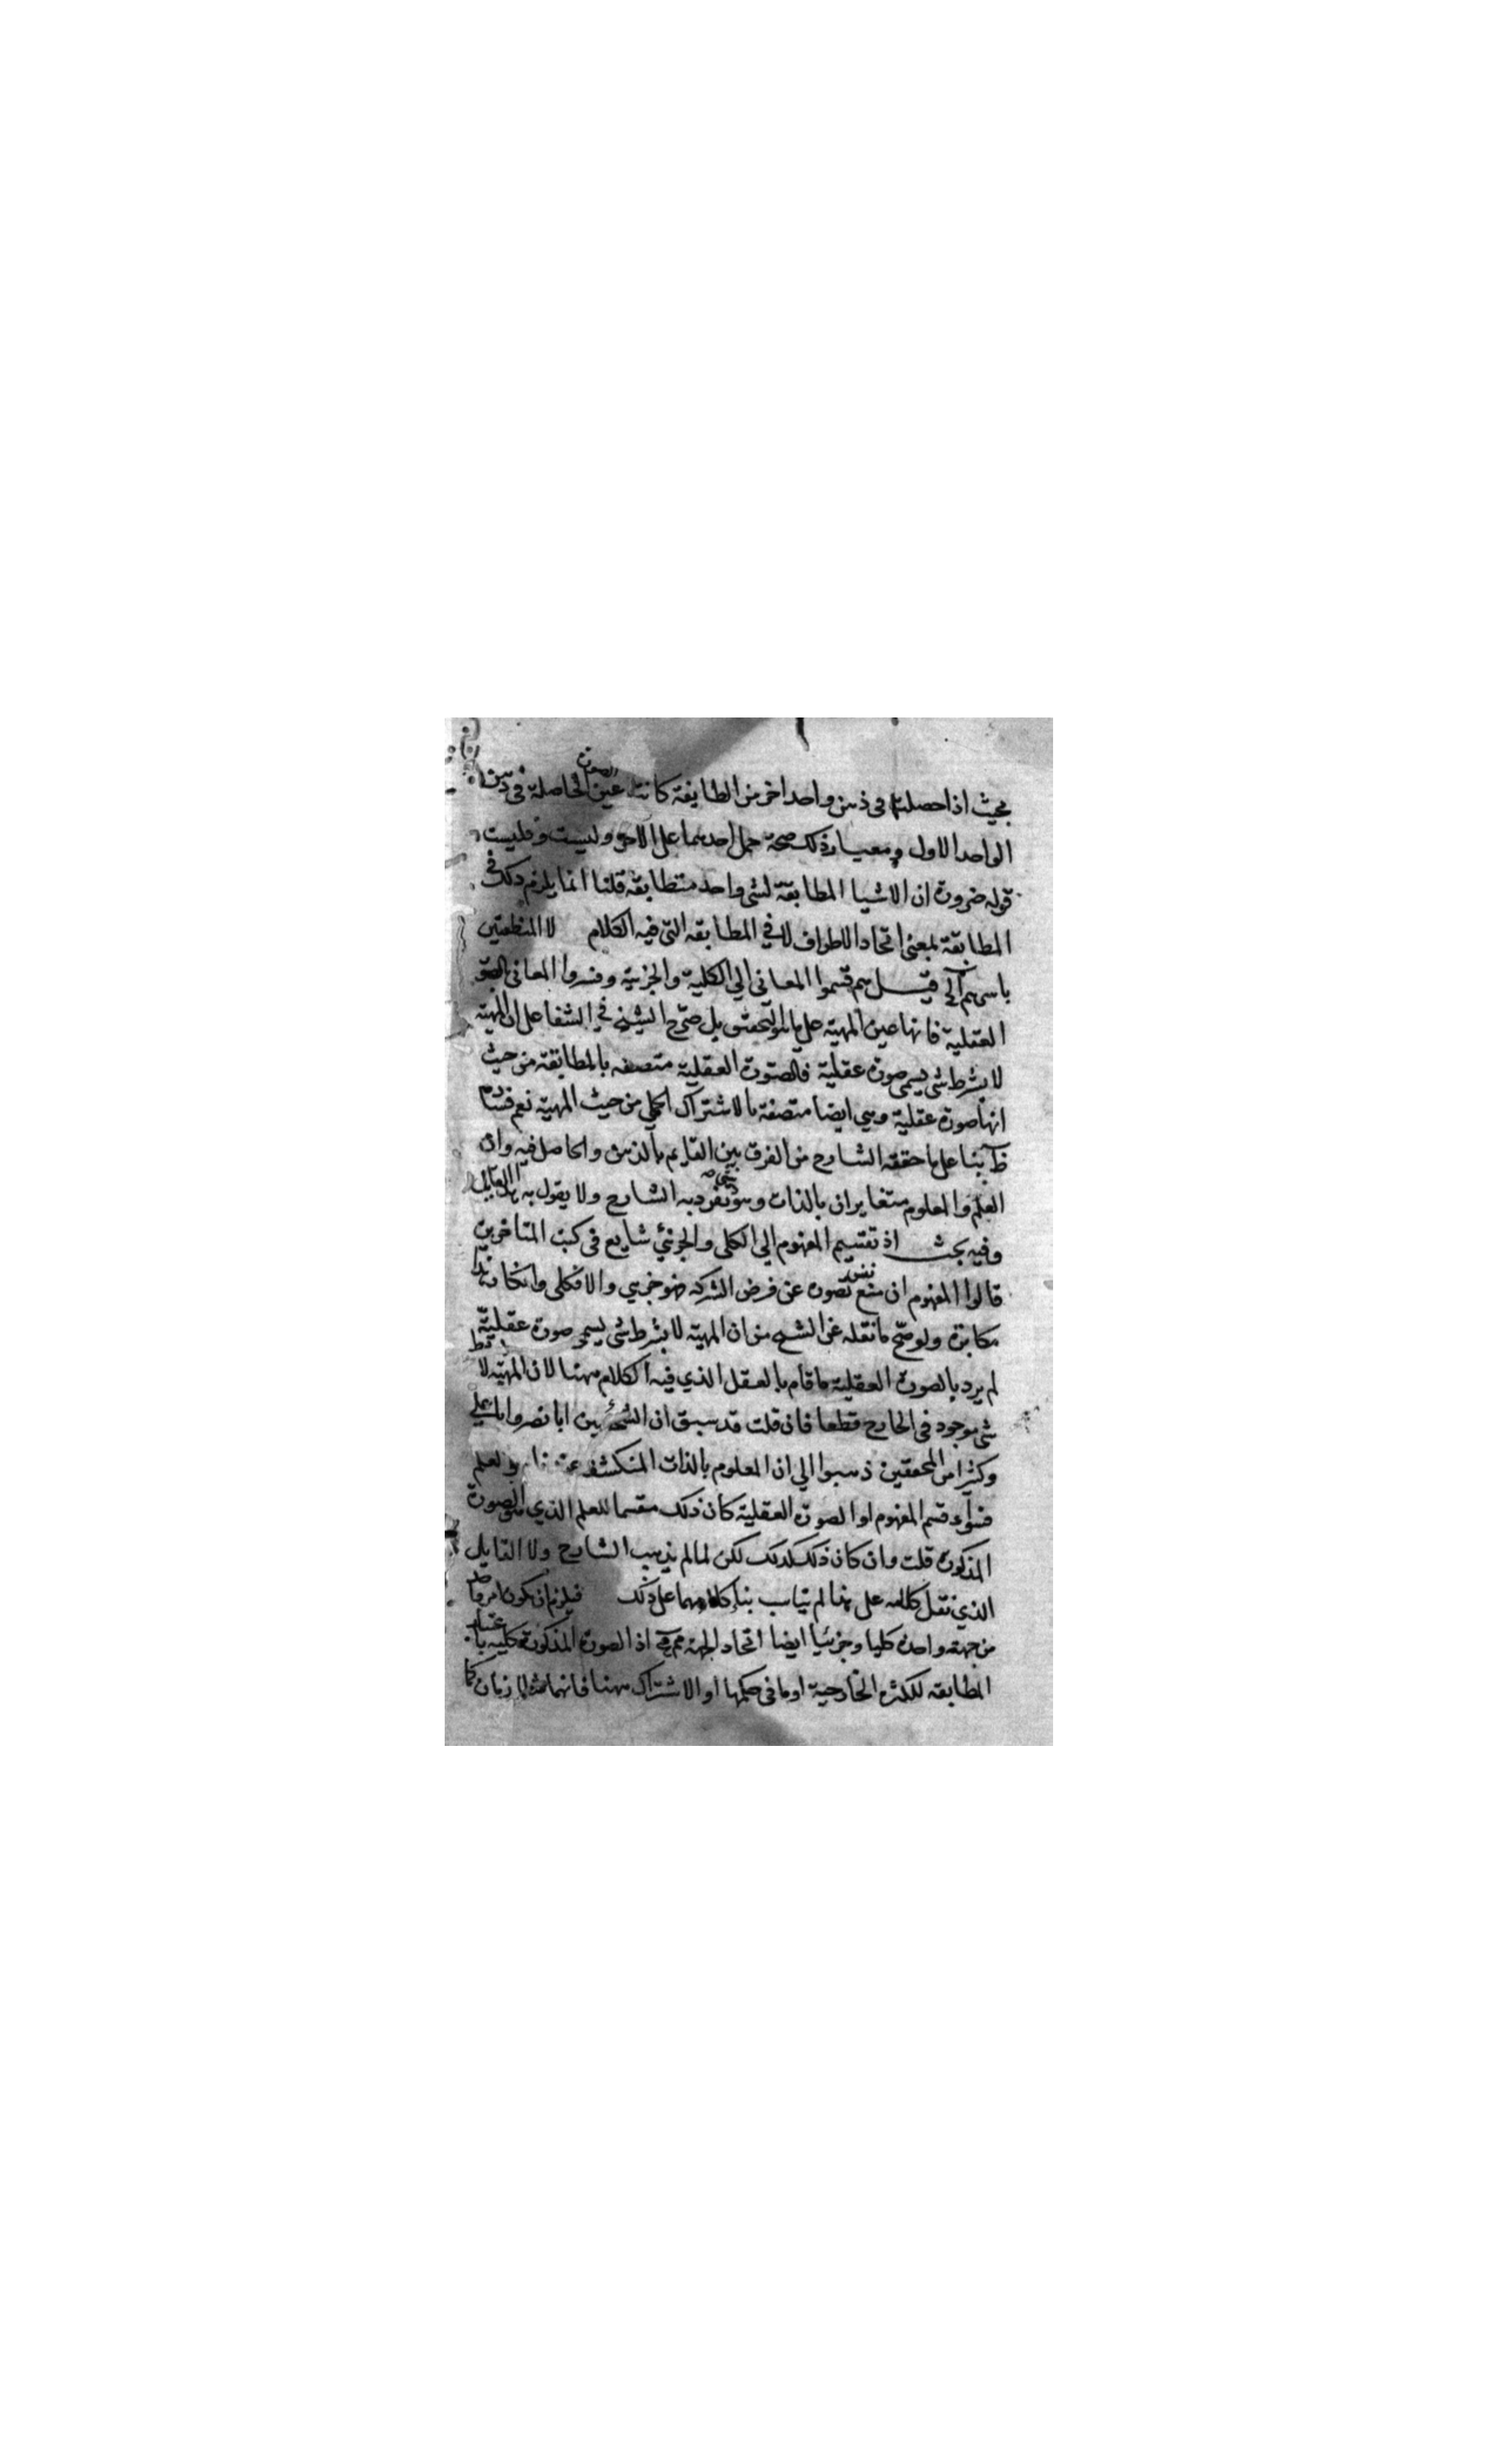 بحيث اذا حصلت في ذهن واحد اخر من الطايفة كانت عين الصورة الحاصلة في ذهن
الواحد الاول ومعيار ذلك صحة حمل احدهما على الاخر وليست فليست
قوله ضرورة ان الاشيا المطابقة لشي واحد متطابقة قلنا انما يلزم ذلك في
المطابقة بمعنى اتحاد الاطراف لا في المطابقة التي فيه الكلام لا المنطقيين
باسرهم الخ قيل هم قسموا المعاني الي الكلية والجزئية وفسروا المعاني بالصور
العقلية فانها عين المهية على ما هو التحقيق بل صرح الشيخ في الشفا على ان المهية
لا بشرط شي يسمى صورة عقلية فالصورة العقلية متصفة بالمطابقة من حيث
انها صورة عقلية وهي ايضا متصفة بالاشتراك الحملي من حيث المهية نعم فساده
ظ بنا على ما حققه الشارح من الفرق بين القايم بالذهن والحاصل فيه وان
العلم والمعلوم متغايران بالذات وهو تفرد به الشارح ولا يقول به هذا القايل
وفيه بحث اذ تقسيم المفهوم الي الكلي والجزئي شايع في كتب المتاخرين
قالوا المفهوم ان منع نفس تصوره عن فرض الشركة فهو جزيي والا فكلي وانكار هذا
مكابرة ولو صح ما نقله عن الشيخ من ان المهية لا بشرط شي يسمى صورة عقلية
لم يرد بالصورة العقلية ما قام بالعقل الذي فيه الكلام ههنا لان المهية لا بشرط
شي موجود في الخارج قطعا فان قلت قد سبق ان الشيخين ابا نصر وابا علي
وكثيرا من المحققين ذهبوا الي ان المعلوم بالذات المنكشف والعلم
فسواء قسم المفهوم او الصورة العقلية كان ذلك مقسما للعلم الذي هي الصورة
المذكورة قلت وان كان ذلك كذلك لكن لما لم يذهب الشارح ولا القايل
الذي نقل كلامه على هذا لم يناسب بناء كلامهما على ذلك فيلزم ان يكون امر واحد
من جهة واحدة كليا وجزئيا ايضا اتحاد الجهة مم اذ الصورة المذكورة كلية باعتبار
المطابقة للكثرة الخارجية او ما في حكمها او الاشتراك ههنا فانهما متلازمان كما